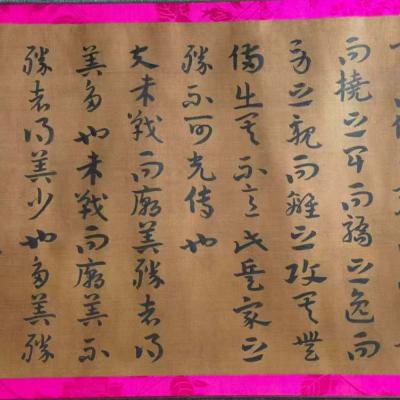 而撓之卑而驕之逸而
勞之親而離之攻其無
備出其不意此兵家之
勝不可先傳也
夫未戰而廟算勝者得
算多也未戰而廟算不
勝者得算少也多算勝